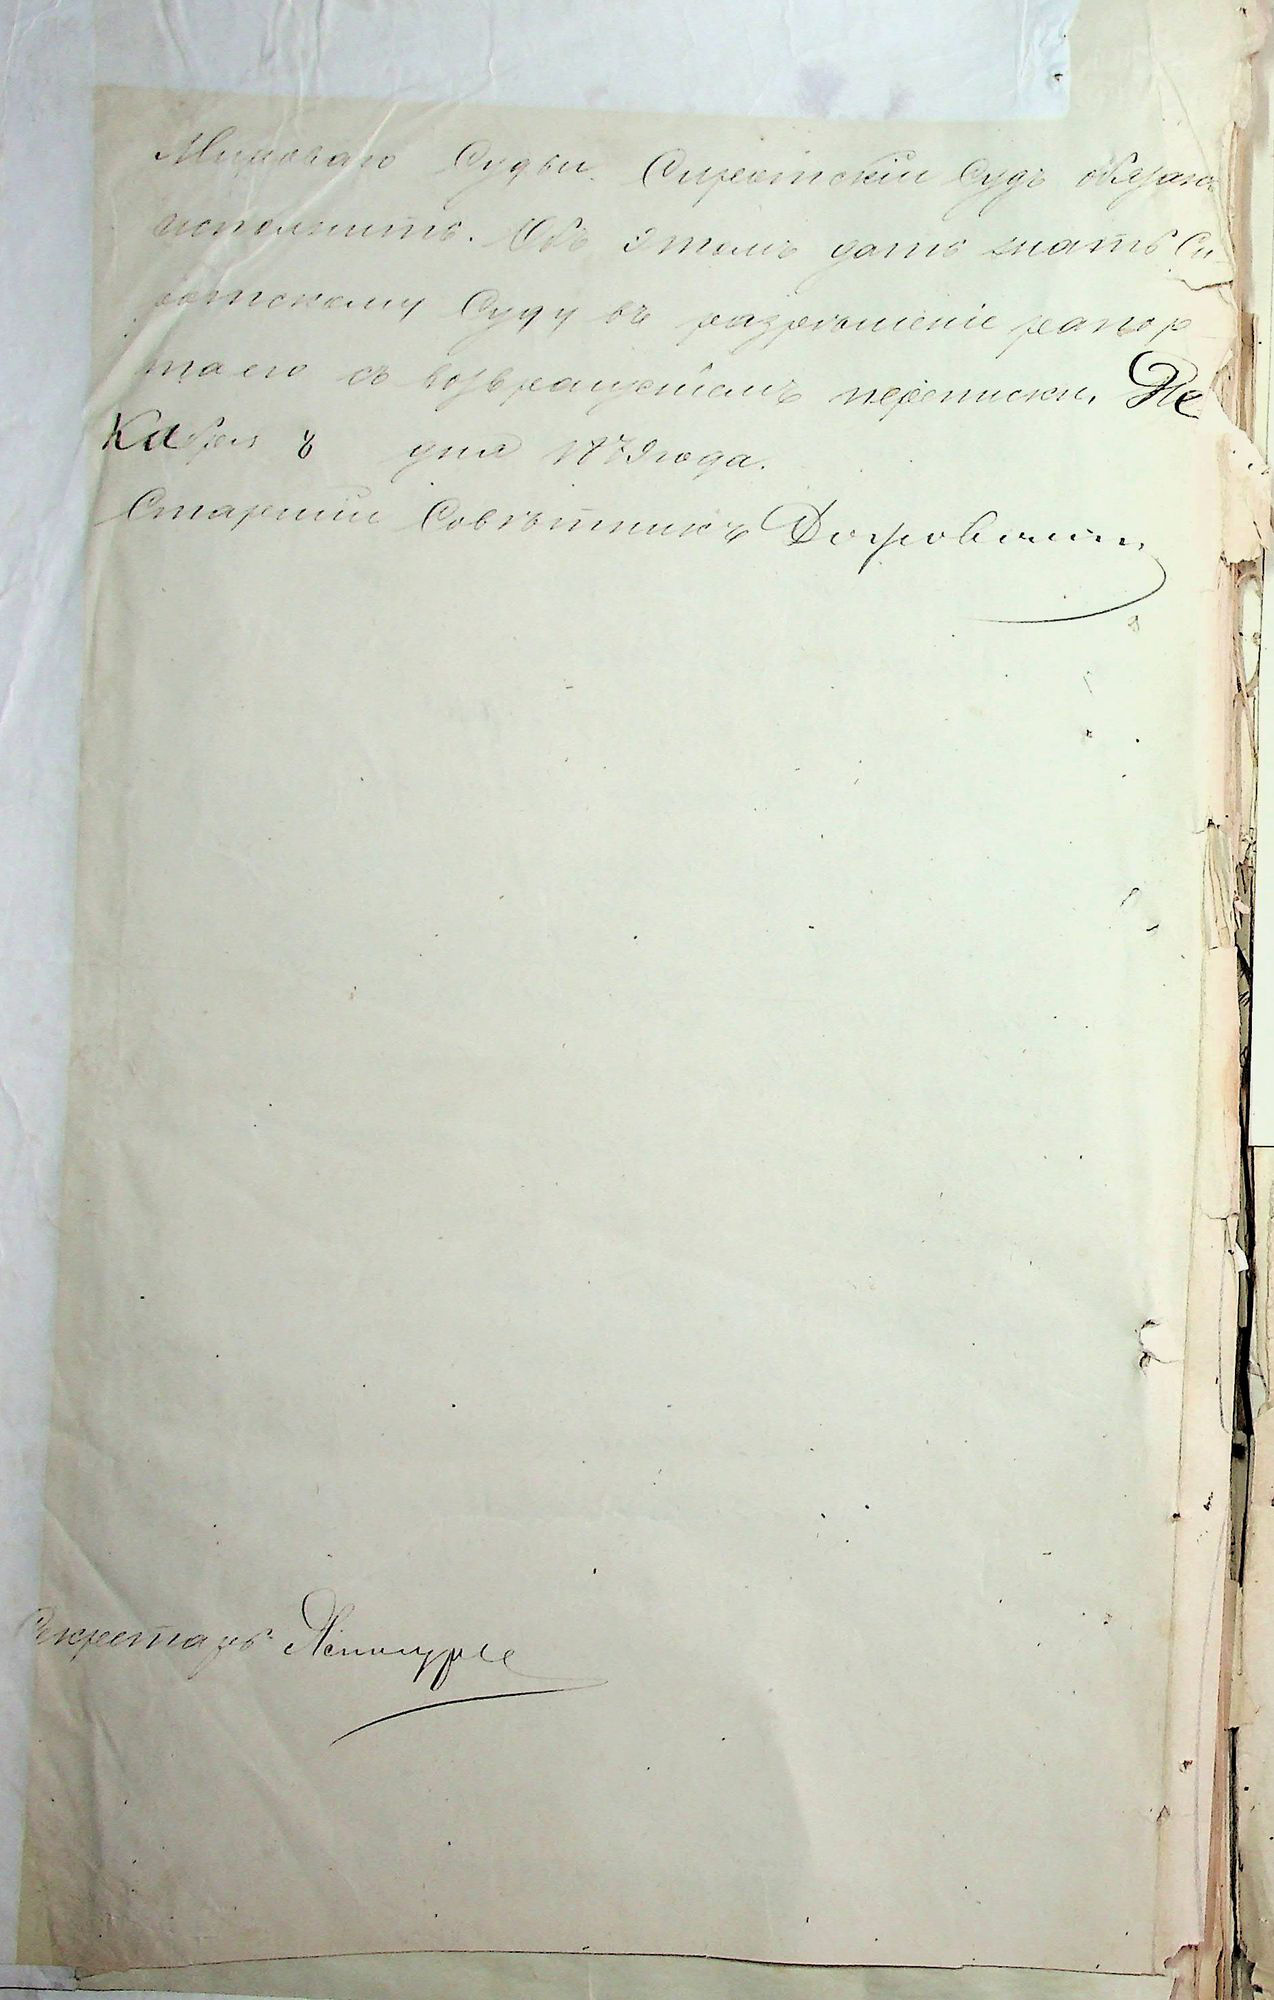 Мироваго Судьи. Сиротскій Судъ обязанъ
исполнить. Объ этомъ дать знать Си
ротскому Суду въ разрѣшеніе рапор
та его съ возвращеніемъ переписки. Де
кабря 8 дня 1879 года.
Старшій Совѣтникъ
Секретарь